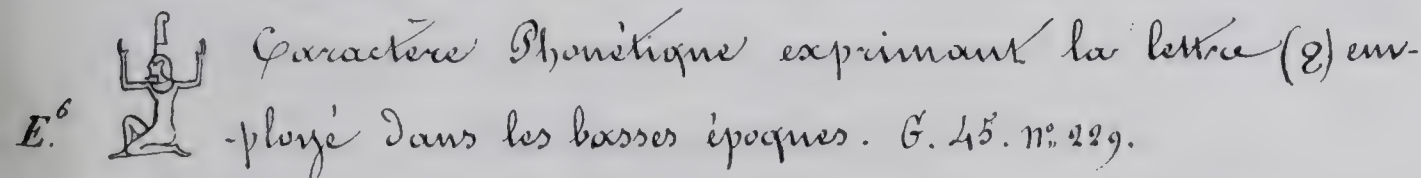 Caractère Phonétique exprimant la lettre (ϩ) em-
E.⁶ -ployé dans les basses époques. G. 45. nº. 229.